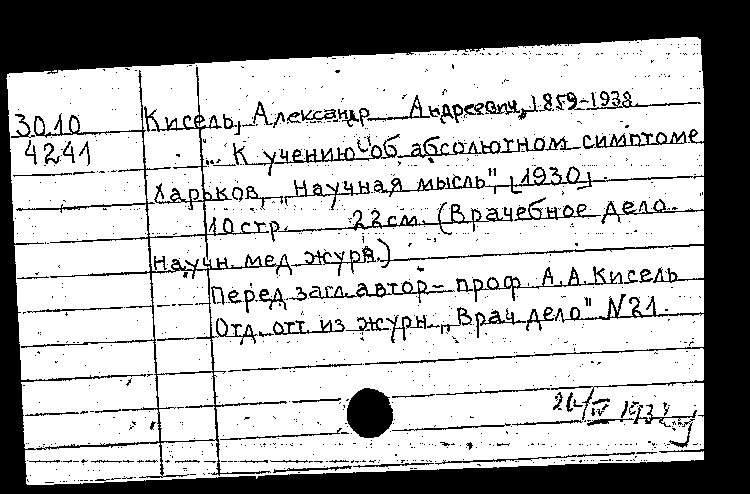 3010
Кисель, Александр Андреевич, 1859-1938
4241
... К учению об абсолютном симптоме
Харьков, „Научная мысль", [1930].
10 стр. 22 см. (Врачебное дело.
Научн. мед журн.)
Перед загл. автор - проф А.А. Кисель
Отд. отт. из журн. „Врач дело" №21.
IV